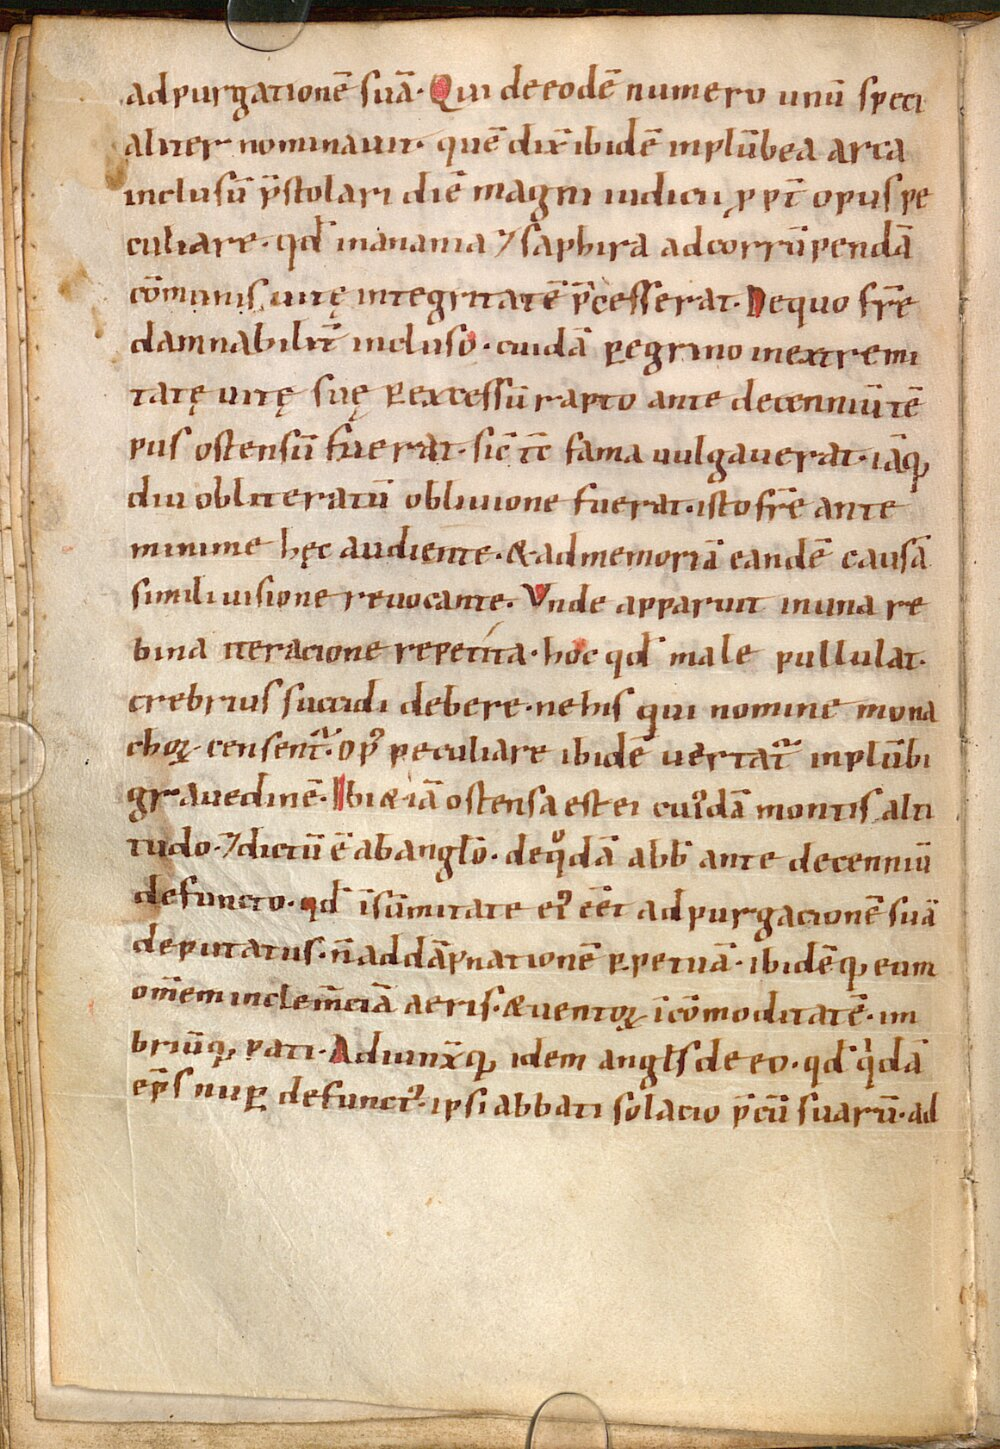 adpurgationē suā. Qui deeodē numero unū speci
aliter nominauit. quē dix̄ ibidē inplūbea arca
inclusū p̄stolari diē magni iudicii ꝓpt̄ opus pe
culiare. qđ inanania ⁊ saphira adcorrūpendā
cōmunis uitę integritatē p̄cesserat. Dequo fr̄e
damnabilit̄ incluso. cuidā ꝑegrino inextremi
tatę uitę suę ꝑexcessū rapto ante decenniū tē
pus ostensū fuerat. sic̄ tc̄ fama uulgauerat. iāq;
diu obliteratū obliuione fuerat. isto fr̄e ante
minime hęc audiente. & admemoriā eandē causā
simili uisione reuocante. Vnde apparuit inuna re
bina iteracione repetita. hoc qđ male pullulat.
crebrius succidi debere. nehis qui nomine mona
choꝝ censent᷑. opꝰ peculiare ibidē uertat᷑ inplūbi
grauedinē. Ibi & iā ostensa est ei cuꝰdā montis alti
tudo. ⁊ dictū ē abangło. deqͦdā abb̄ ante decenniū
defuncto. qđ īsūmitate eꝰ eēt adpurgacionē suā
deputatus. n̄ addāpnationē ꝑpetuā. ibidēq; eum
om̄em inclem̄ciā aeris. & uentoꝝ īcōmoditatē. im
briūq; pati. Adiunx̄q; idem angłs deeo. qđ qͥdā
ep̄s nuꝑ defunctꝰ. ipsi abbati solacio p̄cū suarū. ad